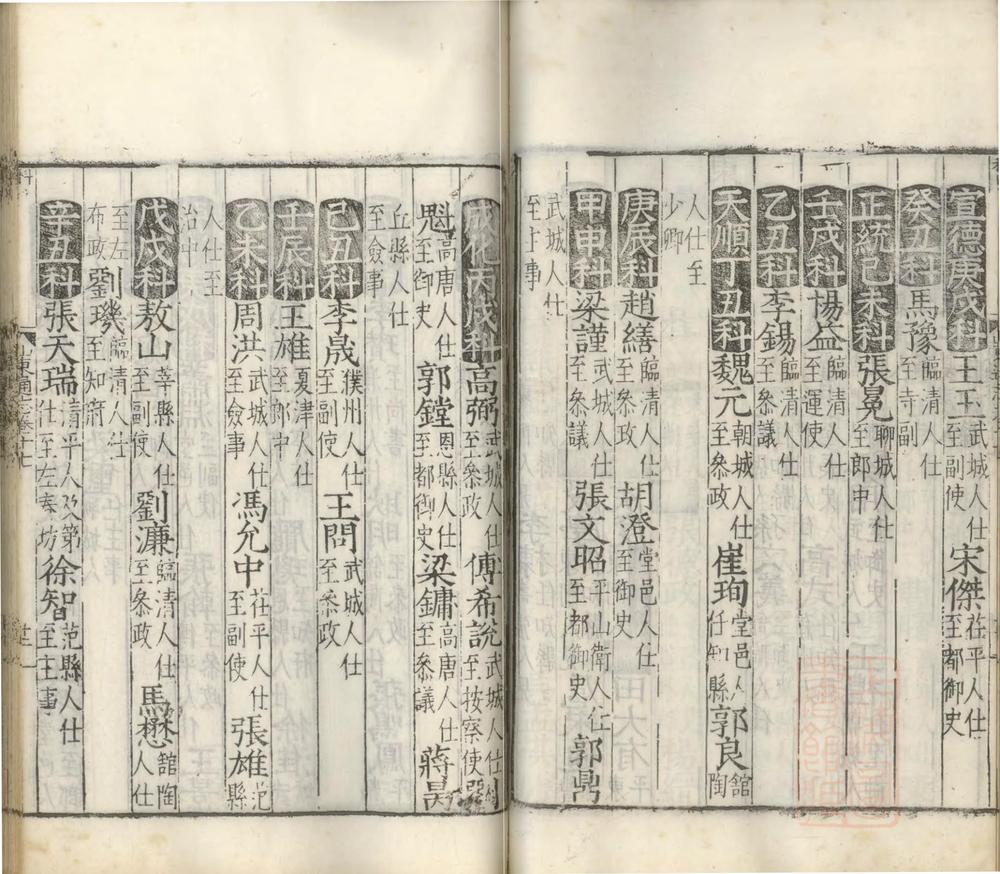 宣德庚戌科 王玉 武城人仕至副使 宋傑 茌平人仕至都御史
癸丑科 馬豫 臨清人仕至寺副
正統己未科 張冕 聊城人仕至郎中
壬戌科 楊益 臨清人仕至運使
乙丑科 李錫 臨清人仕至叅議
天順丁丑科 魏元 朝城人仕至叅政 崔珣 堂邑人任知縣 郭良 舘陶
人仕至少卿
庚辰科 趙繕 臨清人仕至叅政 胡澄 堂邑人仕至御史
甲申科 梁謹 武城人仕至叅議 張文昭 平山衛人仕至都御史 郭鼎
武城人仕至主事
成化丙戌科 高弼 武城人仕至叅政 傅希說 武城人仕至按察使
魁 高唐人仕至御史 郭鏜 恩縣人仕至都御史 梁鏞 高唐人仕至叅議 蔣昺
丘縣人仕至僉事
己丑科 李晟 濮州人仕至副使 王問 武城人仕至叅政
壬辰科 王雄 夏津人仕至郎中
乙未科 周洪 武城人仕至僉事 馮允中 茌平人仕至副使 張雄 范縣
人仕至治中
戊戌科 敖山 莘縣人仕至副使 劉濂 臨清人仕至叅政 馬懋 舘陶人仕
至左布政 劉璣 臨清人仕至知府
辛丑科 張天瑞 清平人及第仕至左春坊 徐智 范縣人仕至主事
山東通志卷十七